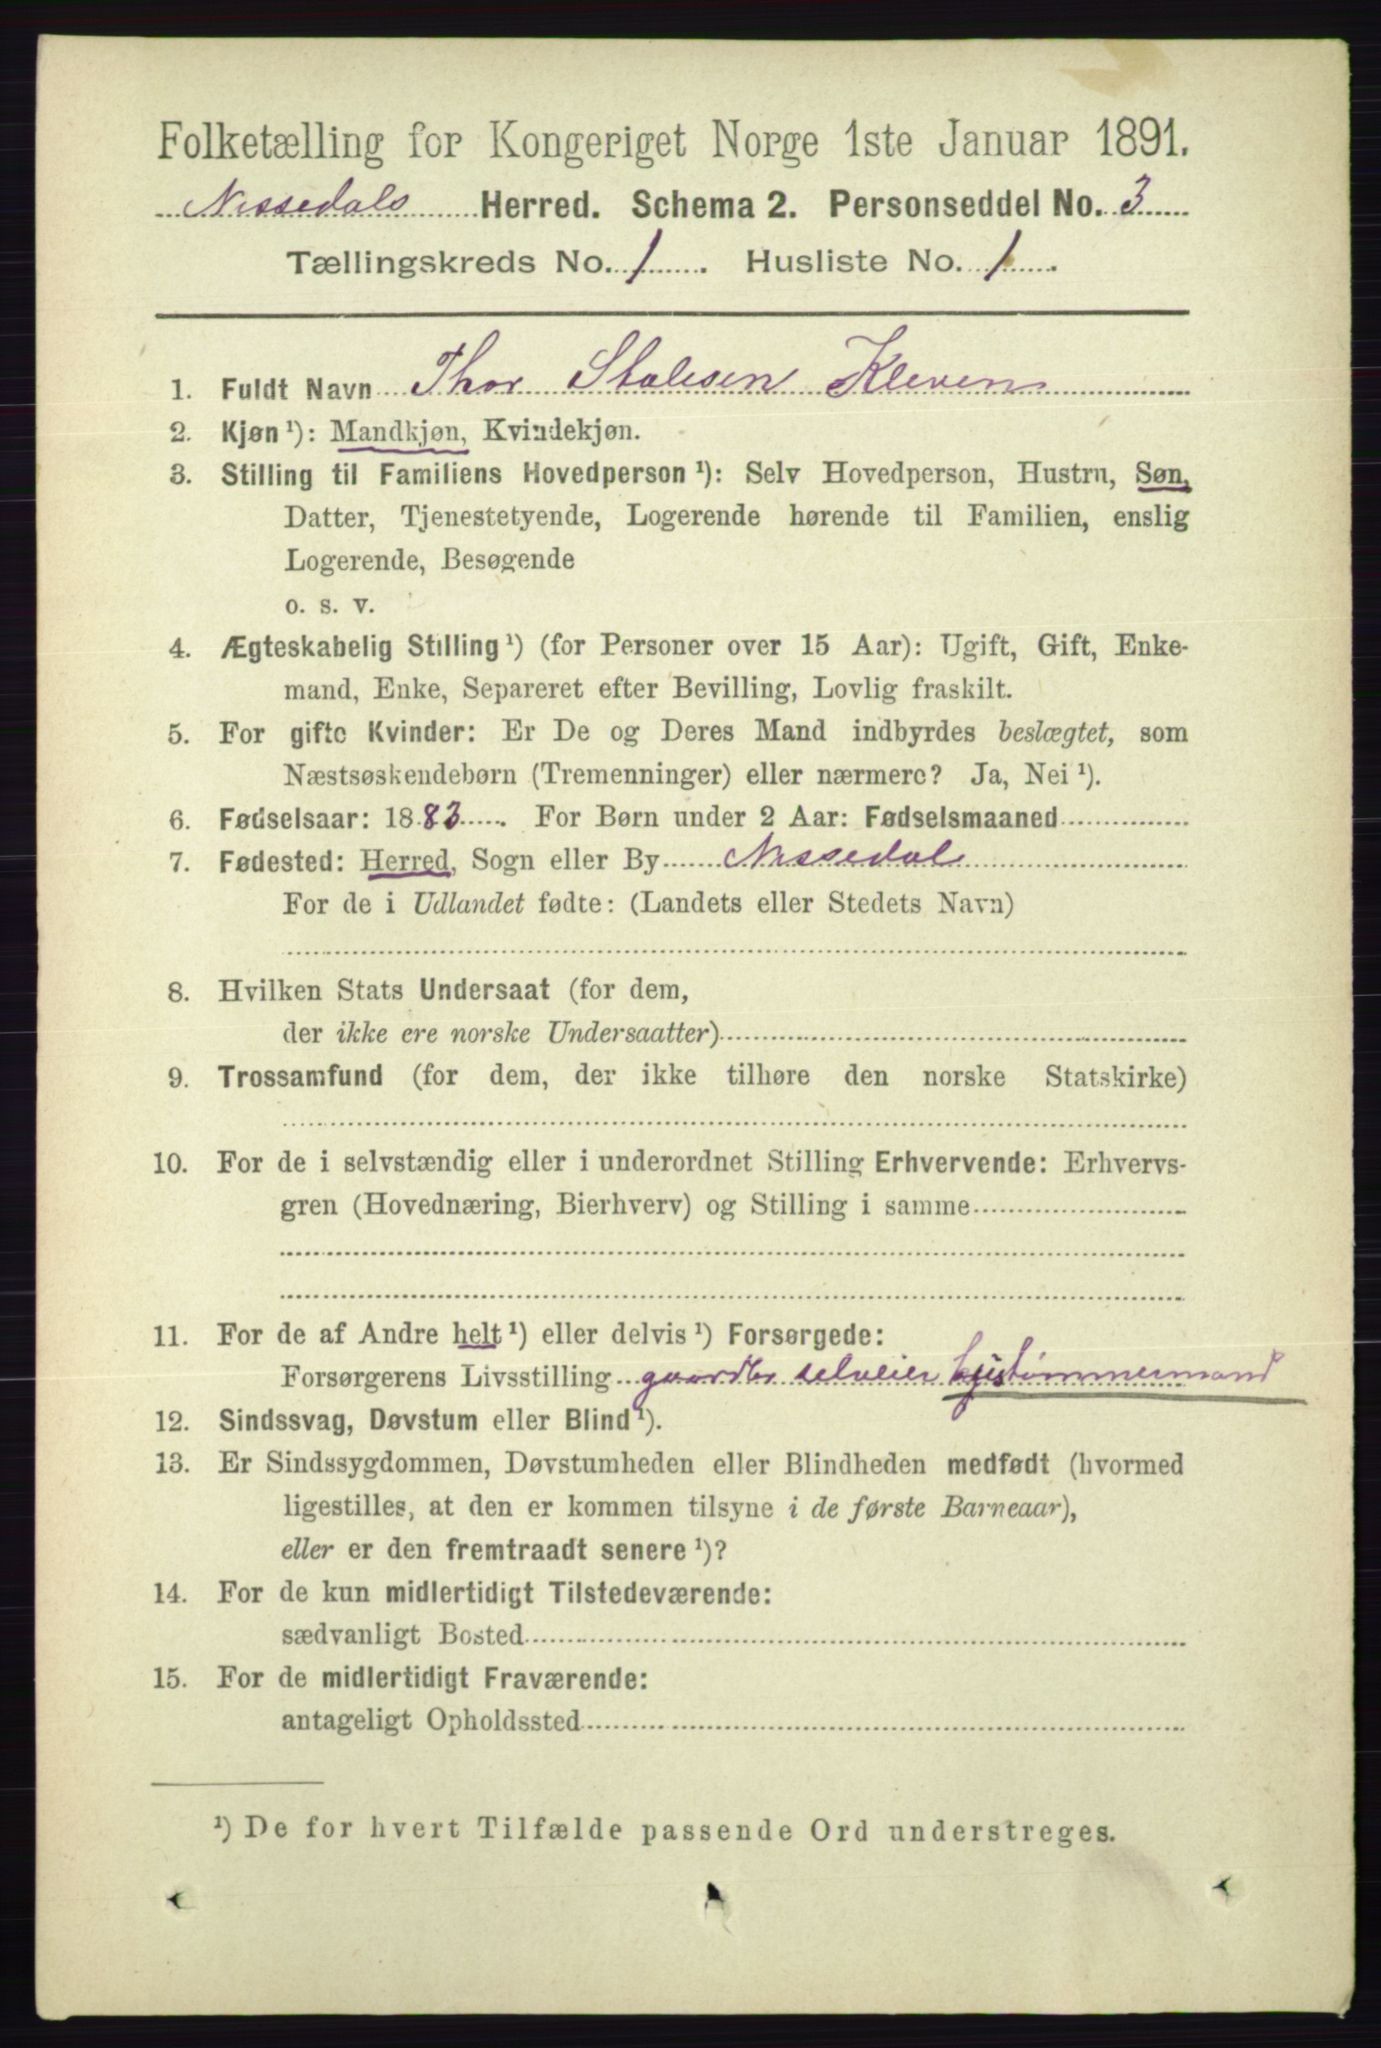 Folketælling for Kongeriget Norge 1ste Januar 1891.
Nissedals Herred. Schema 2. Personseddel No. 3
Tællingskreds No. 1. Husliste No. 1.
1. Fuldt Navn Thor Stalesen Kleven
2. Kjøn ¹): Mandkjøn, Kvindekjøn.
3. Stilling til Familiens Hovedperson ¹): Selv Hovedperson, Hustru, Søn,
Datter, Tjenestetyende, Logerende hørende til Familien, enslig
Logerende, Besøgende
o. s. v.
4. Ægteskabelig Stilling ¹) (for Personer over 15 Aar): Ugift, Gift, Enke-
mand, Enke, Separeret efter Bevilling, Lovlig fraskilt.
5. For gifte Kvinder: Er De og Deres Mand indbyrdes beslægtet, som
Næstsøskendebørn (Tremenninger) eller nærmere? Ja, Nei ¹).
6. Fødselsaar: 1883. For Børn under 2 Aar: Fødselsmaaned
7. Fødested: Herred, Sogn eller By Nissedal
For de i Udlandet fødte: (Landets eller Stedets Navn)
8. Hvilken Stats Undersaat (for dem,
der ikke ere norske Undersaatter)
9. Trossamfund (for dem, der ikke tilhøre den norske Statskirke)
10. For de i selvstændig eller i underordnet Stilling Erhvervende: Erhvervs-
gren (Hovednæring, Bierhverv) og Stilling i samme
11. For de af Andre helt ¹) eller delvis ¹) Forsørgede:
Forsørgerens Livsstilling gaardbr selveier tømmermand
12. Sindssvag, Døvstum eller Blind ¹).
13. Er Sindssygdommen, Døvstumheden eller Blindheden medfødt (hvormed
ligestilles, at den er kommen tilsyne i de første Barneaar),
eller er den fremtraadt senere ¹)?
14. For de kun midlertidigt Tilstedeværende:
sædvanligt Bosted
15. For de midlertidigt Fraværende:
antageligt Opholdssted
¹) De for hvert Tilfælde passende Ord understreges.